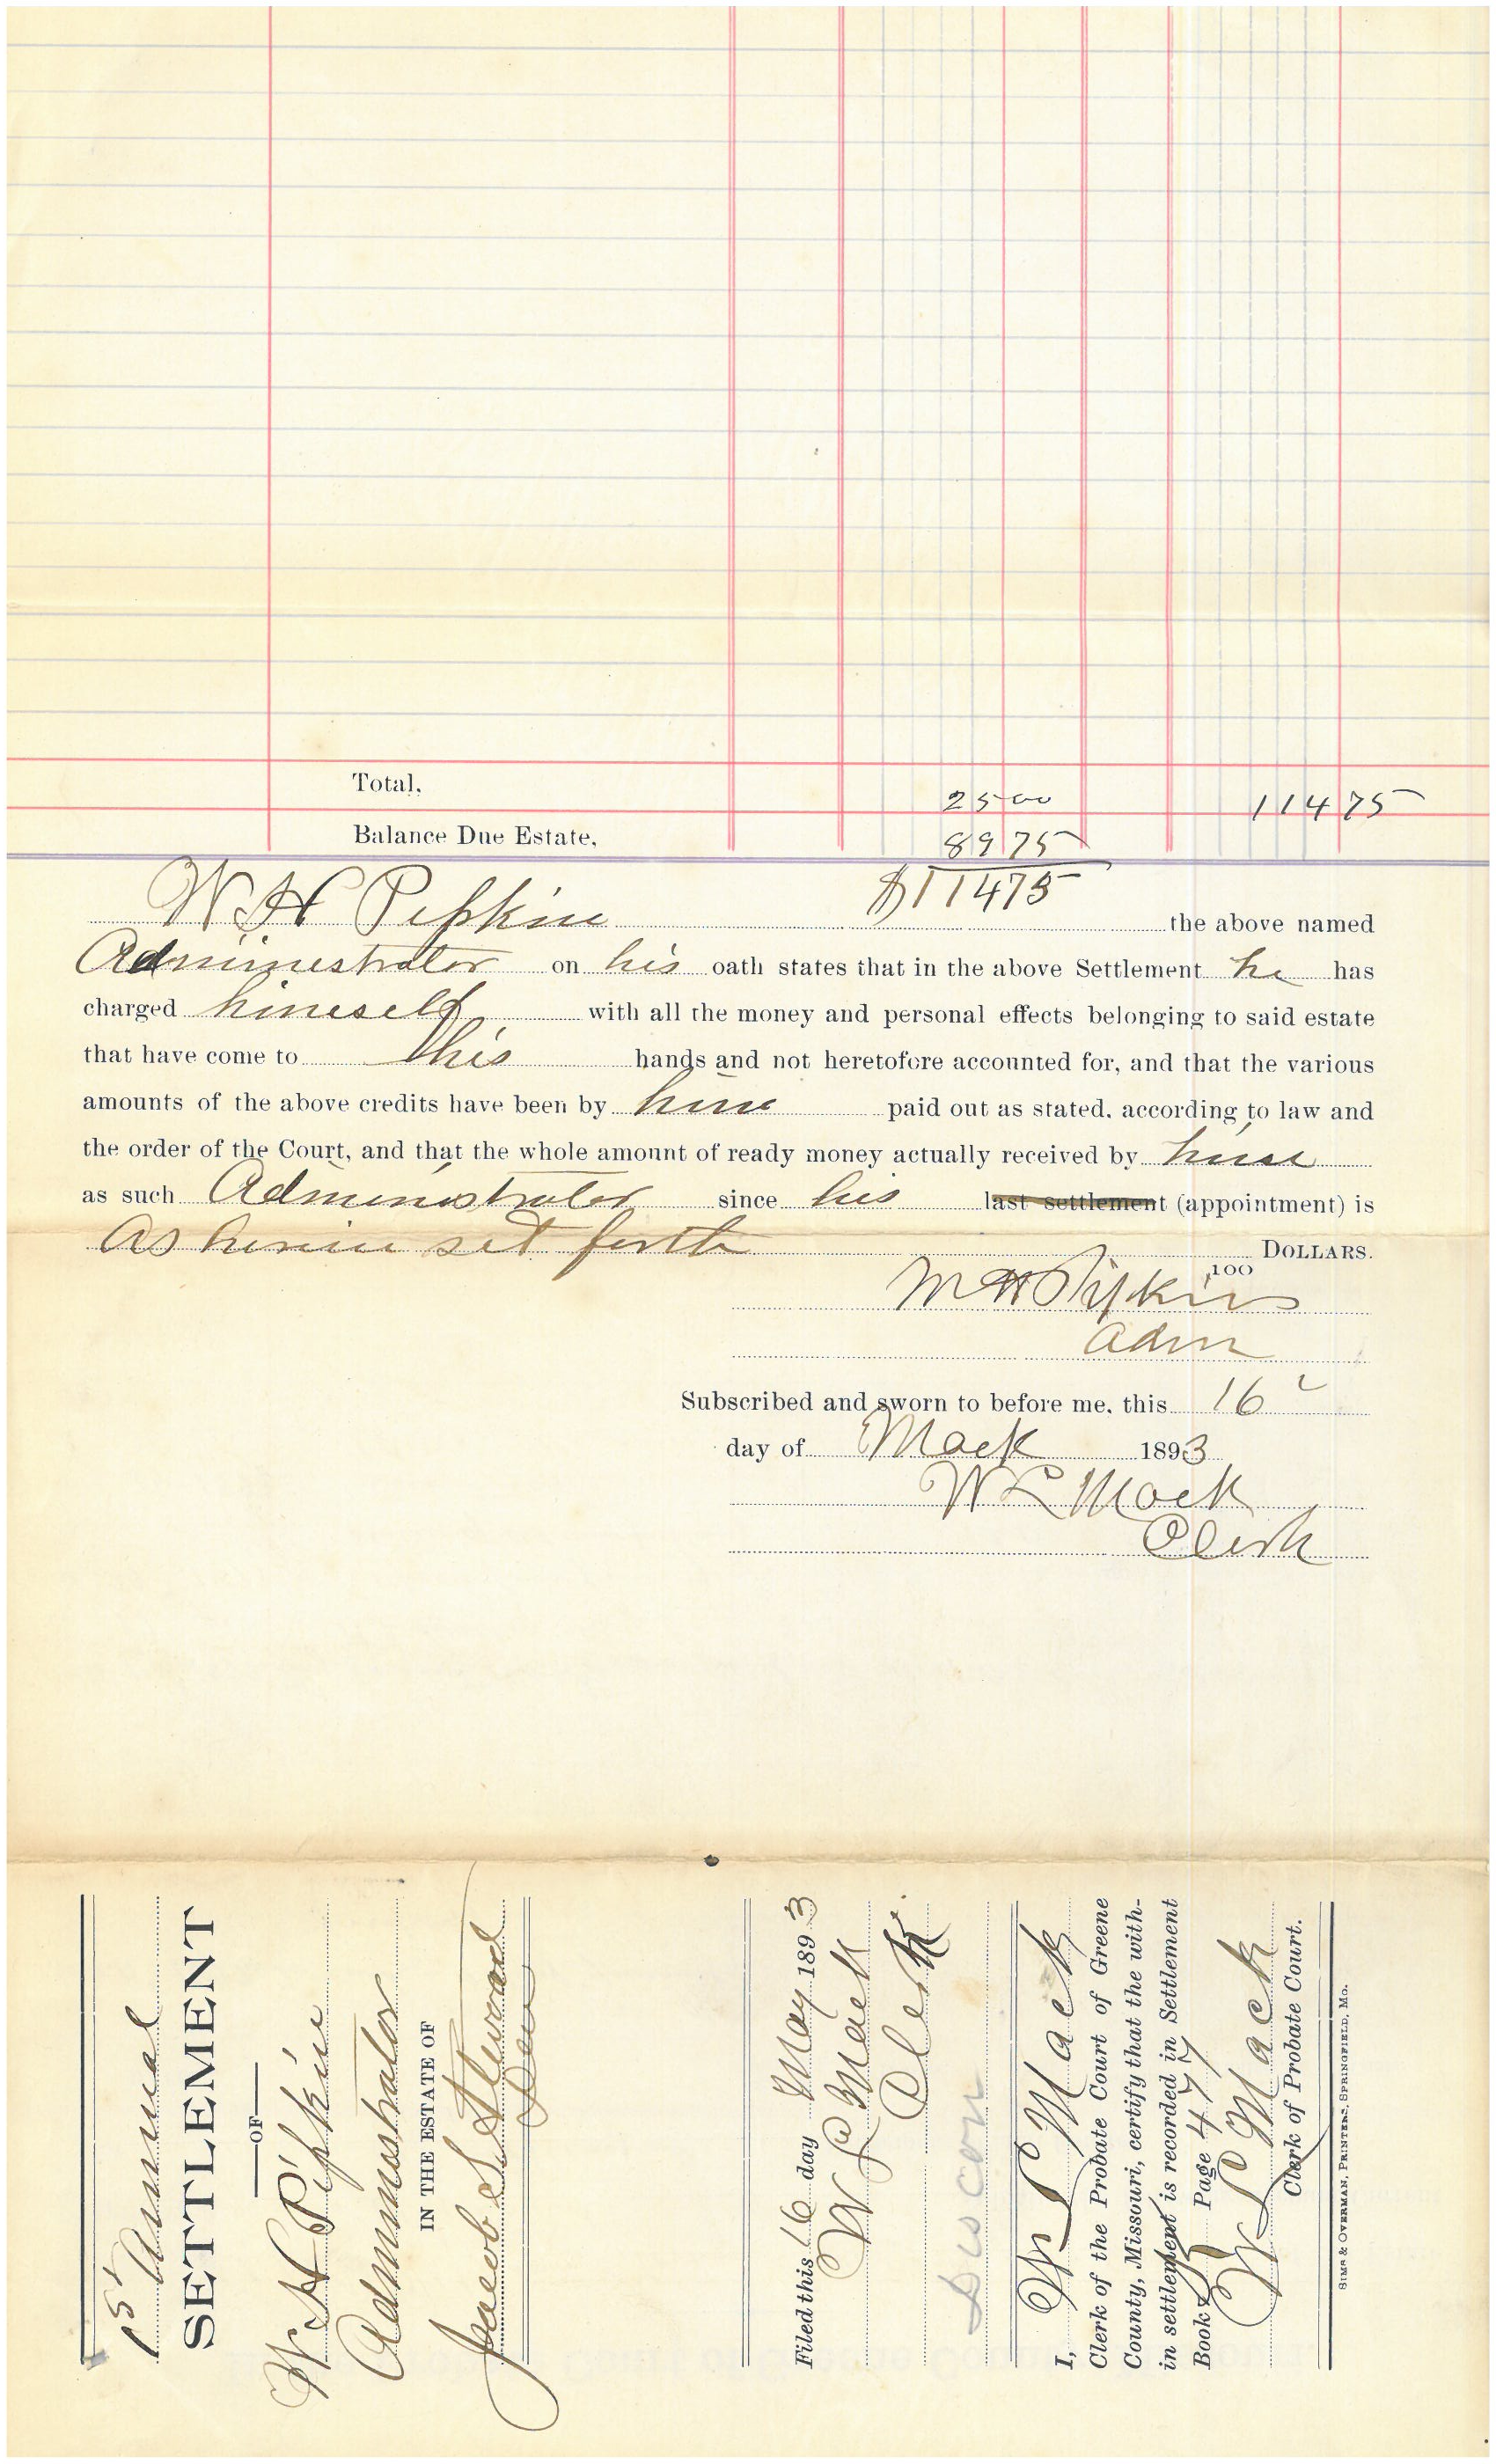 Total, 25 00 114 75
Balance Due Estate, 89 75
W H Pipkin $114 75 the above named
Administrator on his oath states that in the above Settlement he has
charged himself with all the money and personal effects belonging to said estate
that have come to his hands and not heretofore accounted for, and that the various
amounts of the above credits have been by him paid out as stated, according to law and
the order of the Court, and that the whole amount of ready money actually received by him
as such Administrator since his last settlement (appointment) is
As herein set forth DOLLARS.
100
W H Pipkin
Adm
Subscribed and sworn to before me, this 16
day of Mack 1893
W L Mack
Clerk
1st Annual
SETTLEMENT
OF
W H Pipkin
Administrator
IN THE ESTATE OF
Jacob S Atwood
Dec
Filed this 16 day May 1893
W L Mack
Clerk
I, W L Mack
Clerk of the Probate Court of Greene
County, Missouri, certify that the with-
in settlement is recorded in Settlement
Book Page 477
W L Mack
Clerk of Probate Court.
SIMS & OVERMAN, PRINTERS, SPRINGFIELD, MO.